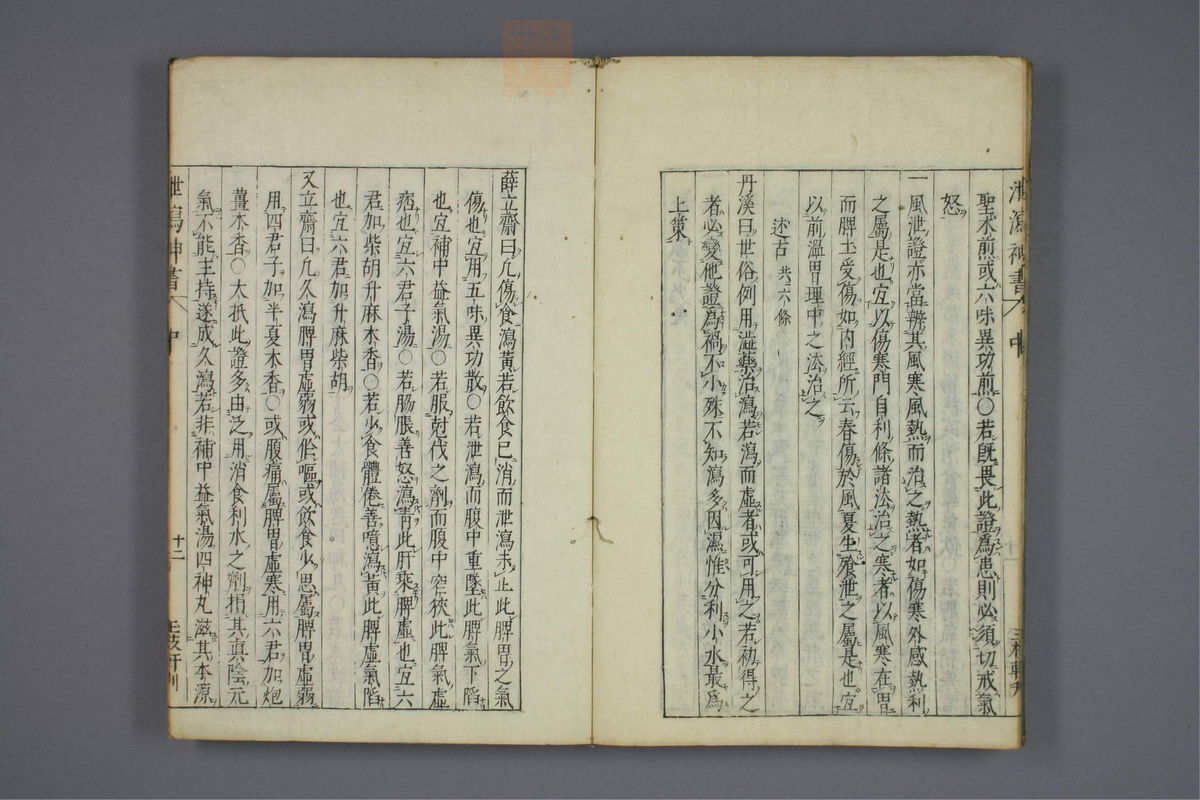 泄瀉神書 中
聖朮煎或六味異功煎〇若既畏此證爲患則必須切戒氣
怒
一風泄證亦當辨其風寒風熱而治之熱者如傷寒外感熱利
之屬是也宜以傷寒門自利條諸法治之寒者以風寒在胃
而脾土受傷如內經所云春傷於風夏生飧泄之屬是也宜
以前溫胃理中之法治之
述古 共六條
丹溪曰世俗例用澁藥治瀉若瀉而虛者或可用之若初得之
者必變他證爲禍不小殊不知瀉多因濕惟分利小水最爲
上策
薛立齋曰凢傷食瀉黃若飲食已消而泄瀉未止此脾胃之氣
傷也宜用五味異功散〇若泄瀉而腹中重墜此脾氣下陷
也宜補中益氣湯〇若服尅伐之劑而腹中窄狹此脾氣虛
痞也宜六君子湯〇若腸脹善怒瀉青此肝乘脾虛也宜六
君加柴胡升麻木香〇若少食體倦善噫瀉黃此脾虛氣陷
也宜六君加升麻柴胡
又立齋曰凢久瀉脾胃虛弱或作嘔或飲食少思屬脾胃虛弱
用四君子加半夏木香〇或腹痛屬脾胃虛寒用六君加炮
薑木香〇大抵此證多由泛用消食利水之劑損其眞陰元
氣不能主持遂成久瀉若非補中益氣湯四神丸滋其本源
泄瀉神書 中 十二